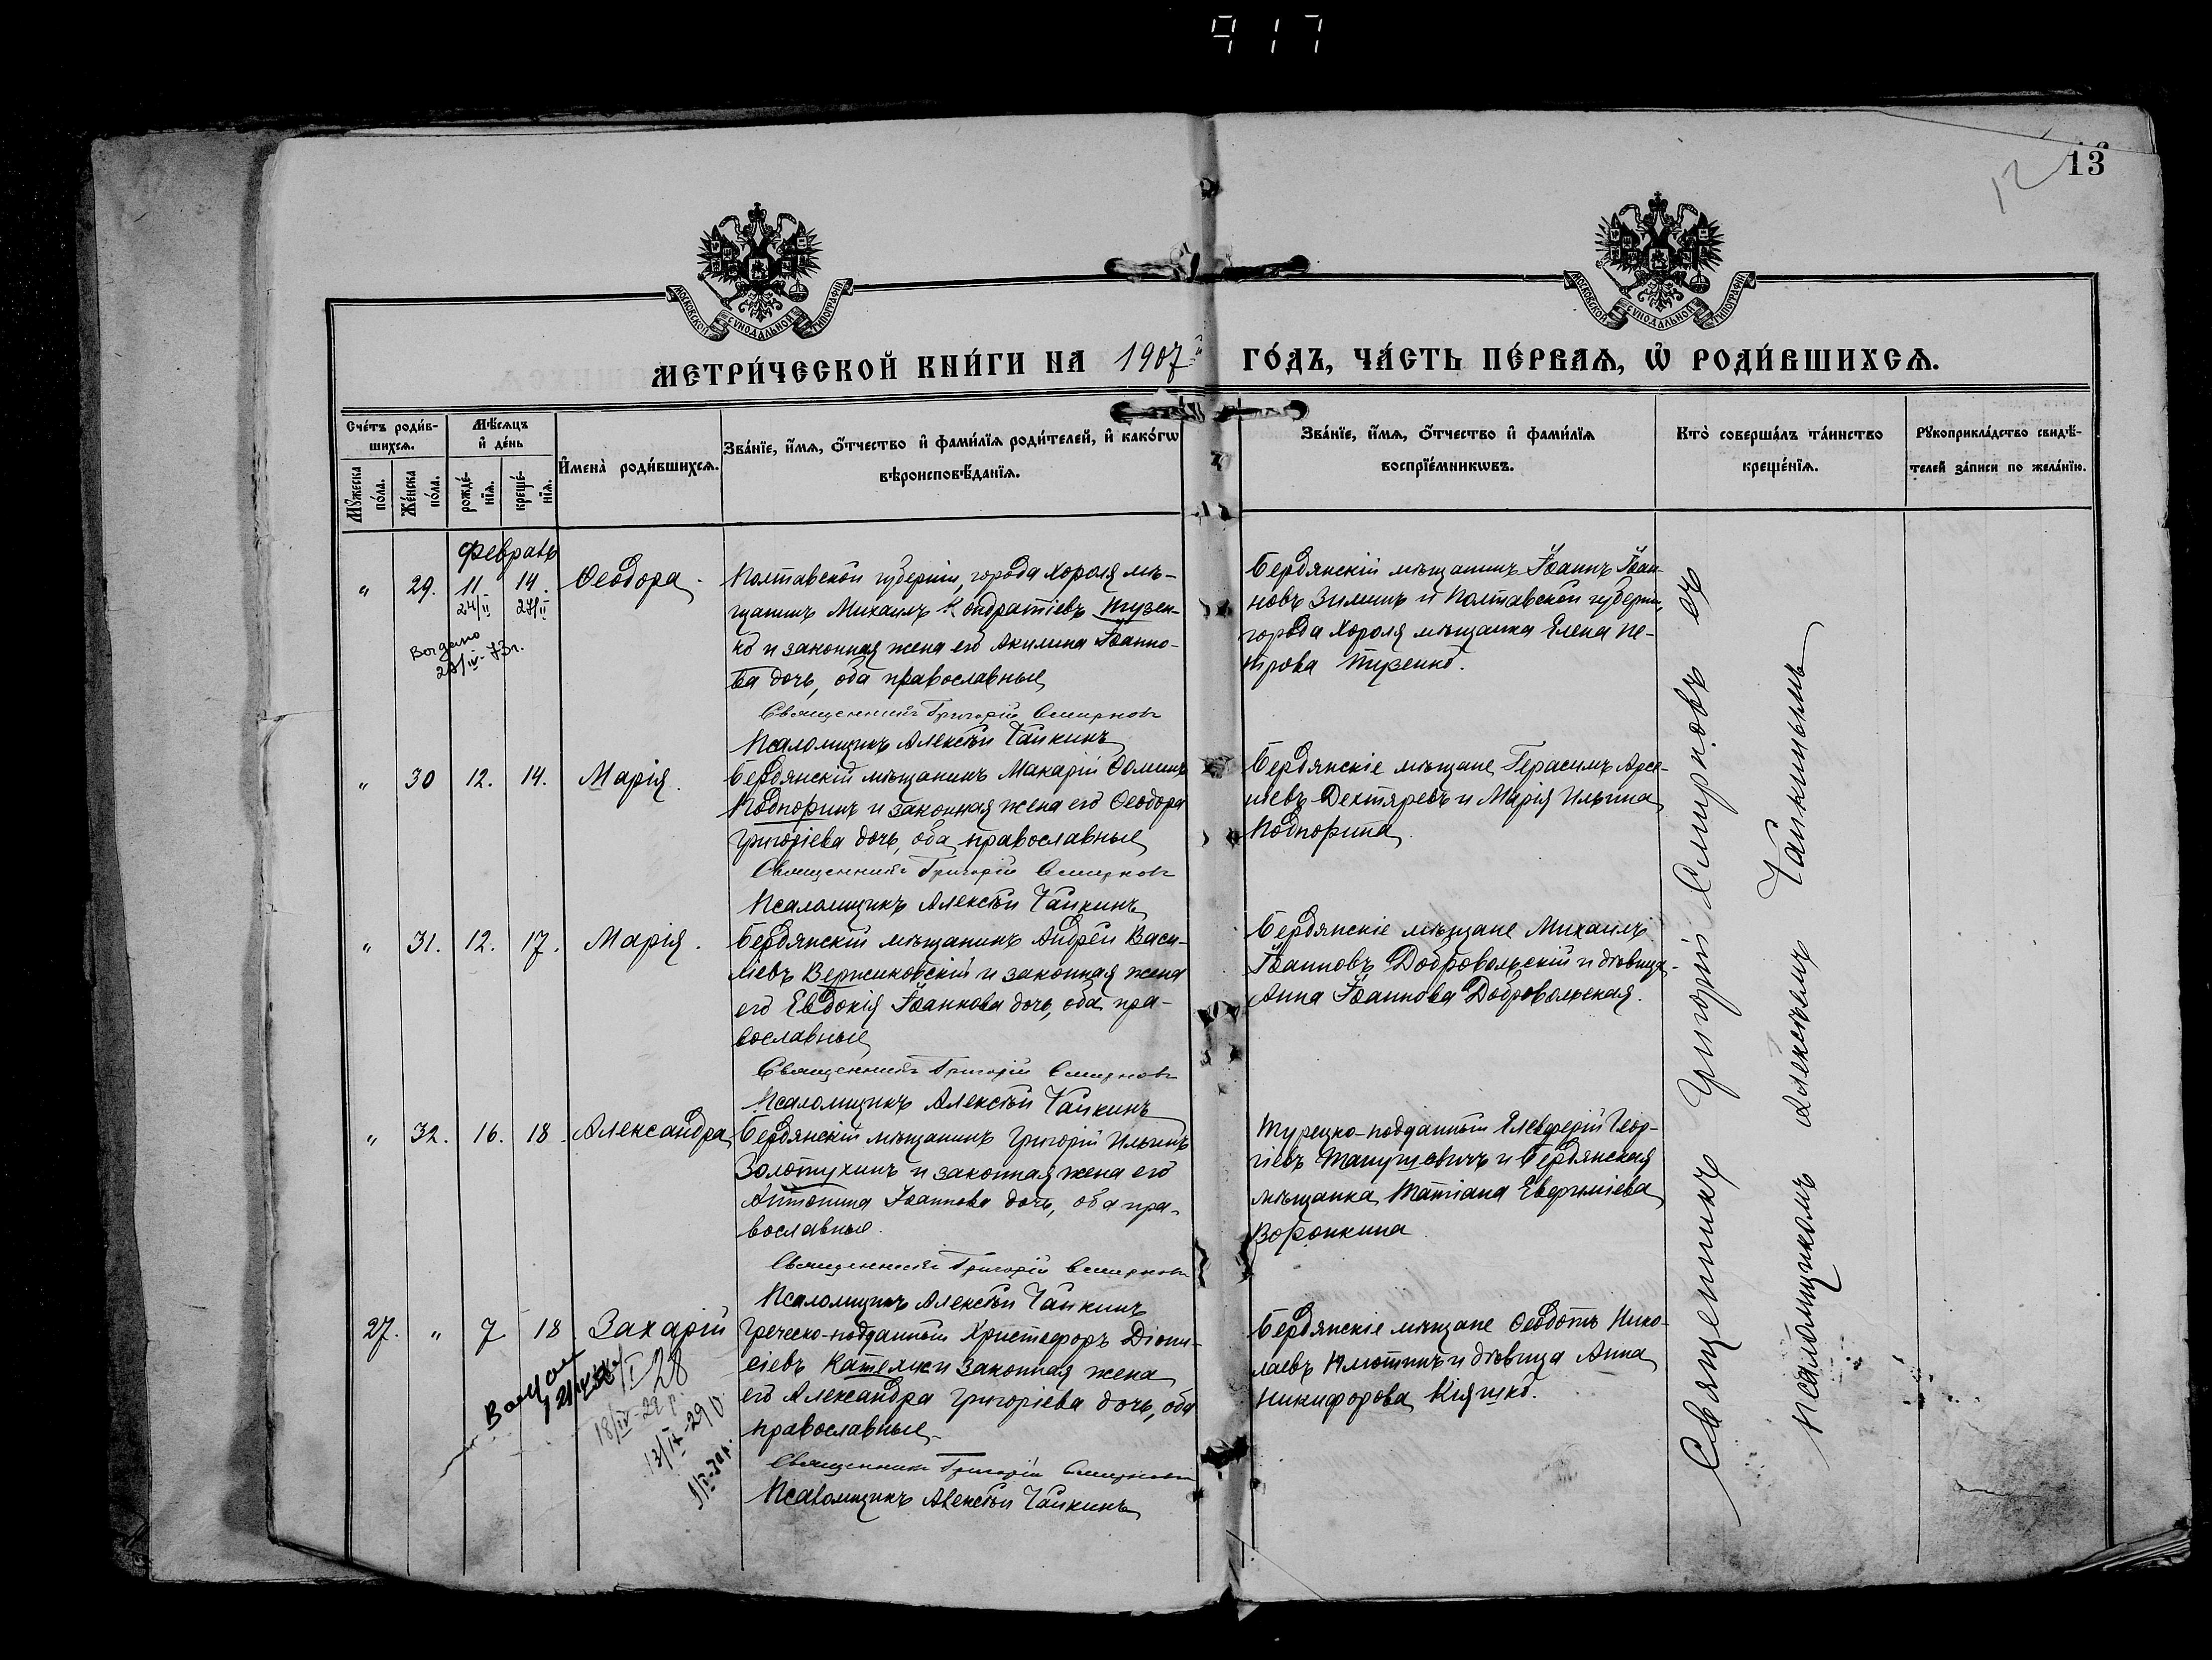 917
13
12
МОСКОВСКОЙ СУНОДАЛЬНОЙ ТИПОГРАФІИ
МОСКОВСКОЙ СУНОДАЛЬНОЙ ТИПОГРАФІИ
МЕТРИ́ЧЕСКОЙ КНИ́ГИ НА 1907й ГО́ДЪ, ЧА́СТЬ ПЕ́РВАѦ, Ѽ РОДИ́ВШИХСѦ.
Сче́тъ роди́в-
шихсѧ.
Мꙋ́жеска
по́ла.
Же́нска
по́ла.
Мѣ́сѧцъ
и҆ де́нь
рожде́-
нїѧ.
креще́-
нїѧ.
И҆мена̀ роди́вшихсѧ.
Зва́нїе, и҆́мѧ, ѻ҆́тчество и҆ фами́лїѧ роди́телей, и҆ како́гѡ
вѣроисповѣ́данїѧ.
Зва́нїе, и҆́мѧ, ѻ҆́тчество и҆ фами́лїѧ
воспрїе́мникѡвъ.
Кто̀ соверша́лъ та́инство
креще́нїѧ.
Рꙋкоприкла́дство свидѣ́-
телей за́писи по жела́нїю.
Февраль
„ 29. 11. 14. Ѳеодора.
24/II 27/II
28/IV-73г.
Полтавской губерніи, города Хороля мѣ-
щанинъ Михаилъ Кондратіевъ Тузен-
ко и законная жена его Акилина Іоанно-
ва дочь, оба православные
Священникъ Григорій Смирновъ
Псаломщикъ Алексѣй Чайкинъ
Бердянскій мѣщанинъ Іоаннъ Іоан-
новъ Зиминъ и Полтавской губерніи,
города Хороля мѣщанка Елена Пе-
трова Тузенко.
„ 30 12. 14. Марія.
Бердянскій мѣщанинъ Макарій Ѳоминъ
Подпоринъ и законная жена его Ѳеодора
Григоріева дочь, оба православные
Священникъ Григорій Смирновъ
Псаломщикъ Алексѣй Чайкинъ
Бердянскіе мѣщане Герасимъ Арсе-
ніевъ Дехтяревъ и Марія Ильина
Подпорина
„ 31. 12. 17. Марія.
Бердянскій мѣщанинъ Андрей Васи-
ліевъ Вержиковскій и законная жена
его Евдокія Іоаннова дочь, оба пра-
вославные
Священникъ Григорій Смирновъ
Псаломщикъ Алексѣй Чайкинъ
Бердянскіе мѣщане Михаилъ
Іоанновъ Добровольскій и дѣвица
Анна Іоаннова Добровольская.
„ 32. 16. 18. Александра
Бердянскій мѣщанинъ Григорій Ильинъ
Золотухинъ и законная жена его
Антонина Іоаннова дочь, оба пра-
вославные.
Священникъ Григорій Смирновъ
Псаломщикъ Алексѣй Чайкинъ
Турецко-подданный Елевферій Геор-
гіевъ и Бердянская
мѣщанка Татіана Евѳиміева
Воронкина
27. „ 7 18 Захарій
28
18/IV-
13/IX-29
Греческо-подданный Христофоръ Діони-
сіевъ и законная жена
его Александра Григоріева дочь, оба
православные
Священникъ Григорій Смирновъ
Псаломщикъ Алексѣй Чайкинъ
Бердянскіе мѣщане Ѳеодотъ Нико-
лаевъ и дѣвица Анна
Никифорова Кіяшко.
Священникъ Григорій Смирновъ съ
псаломщикомъ Алексѣемъ Чайкинымъ